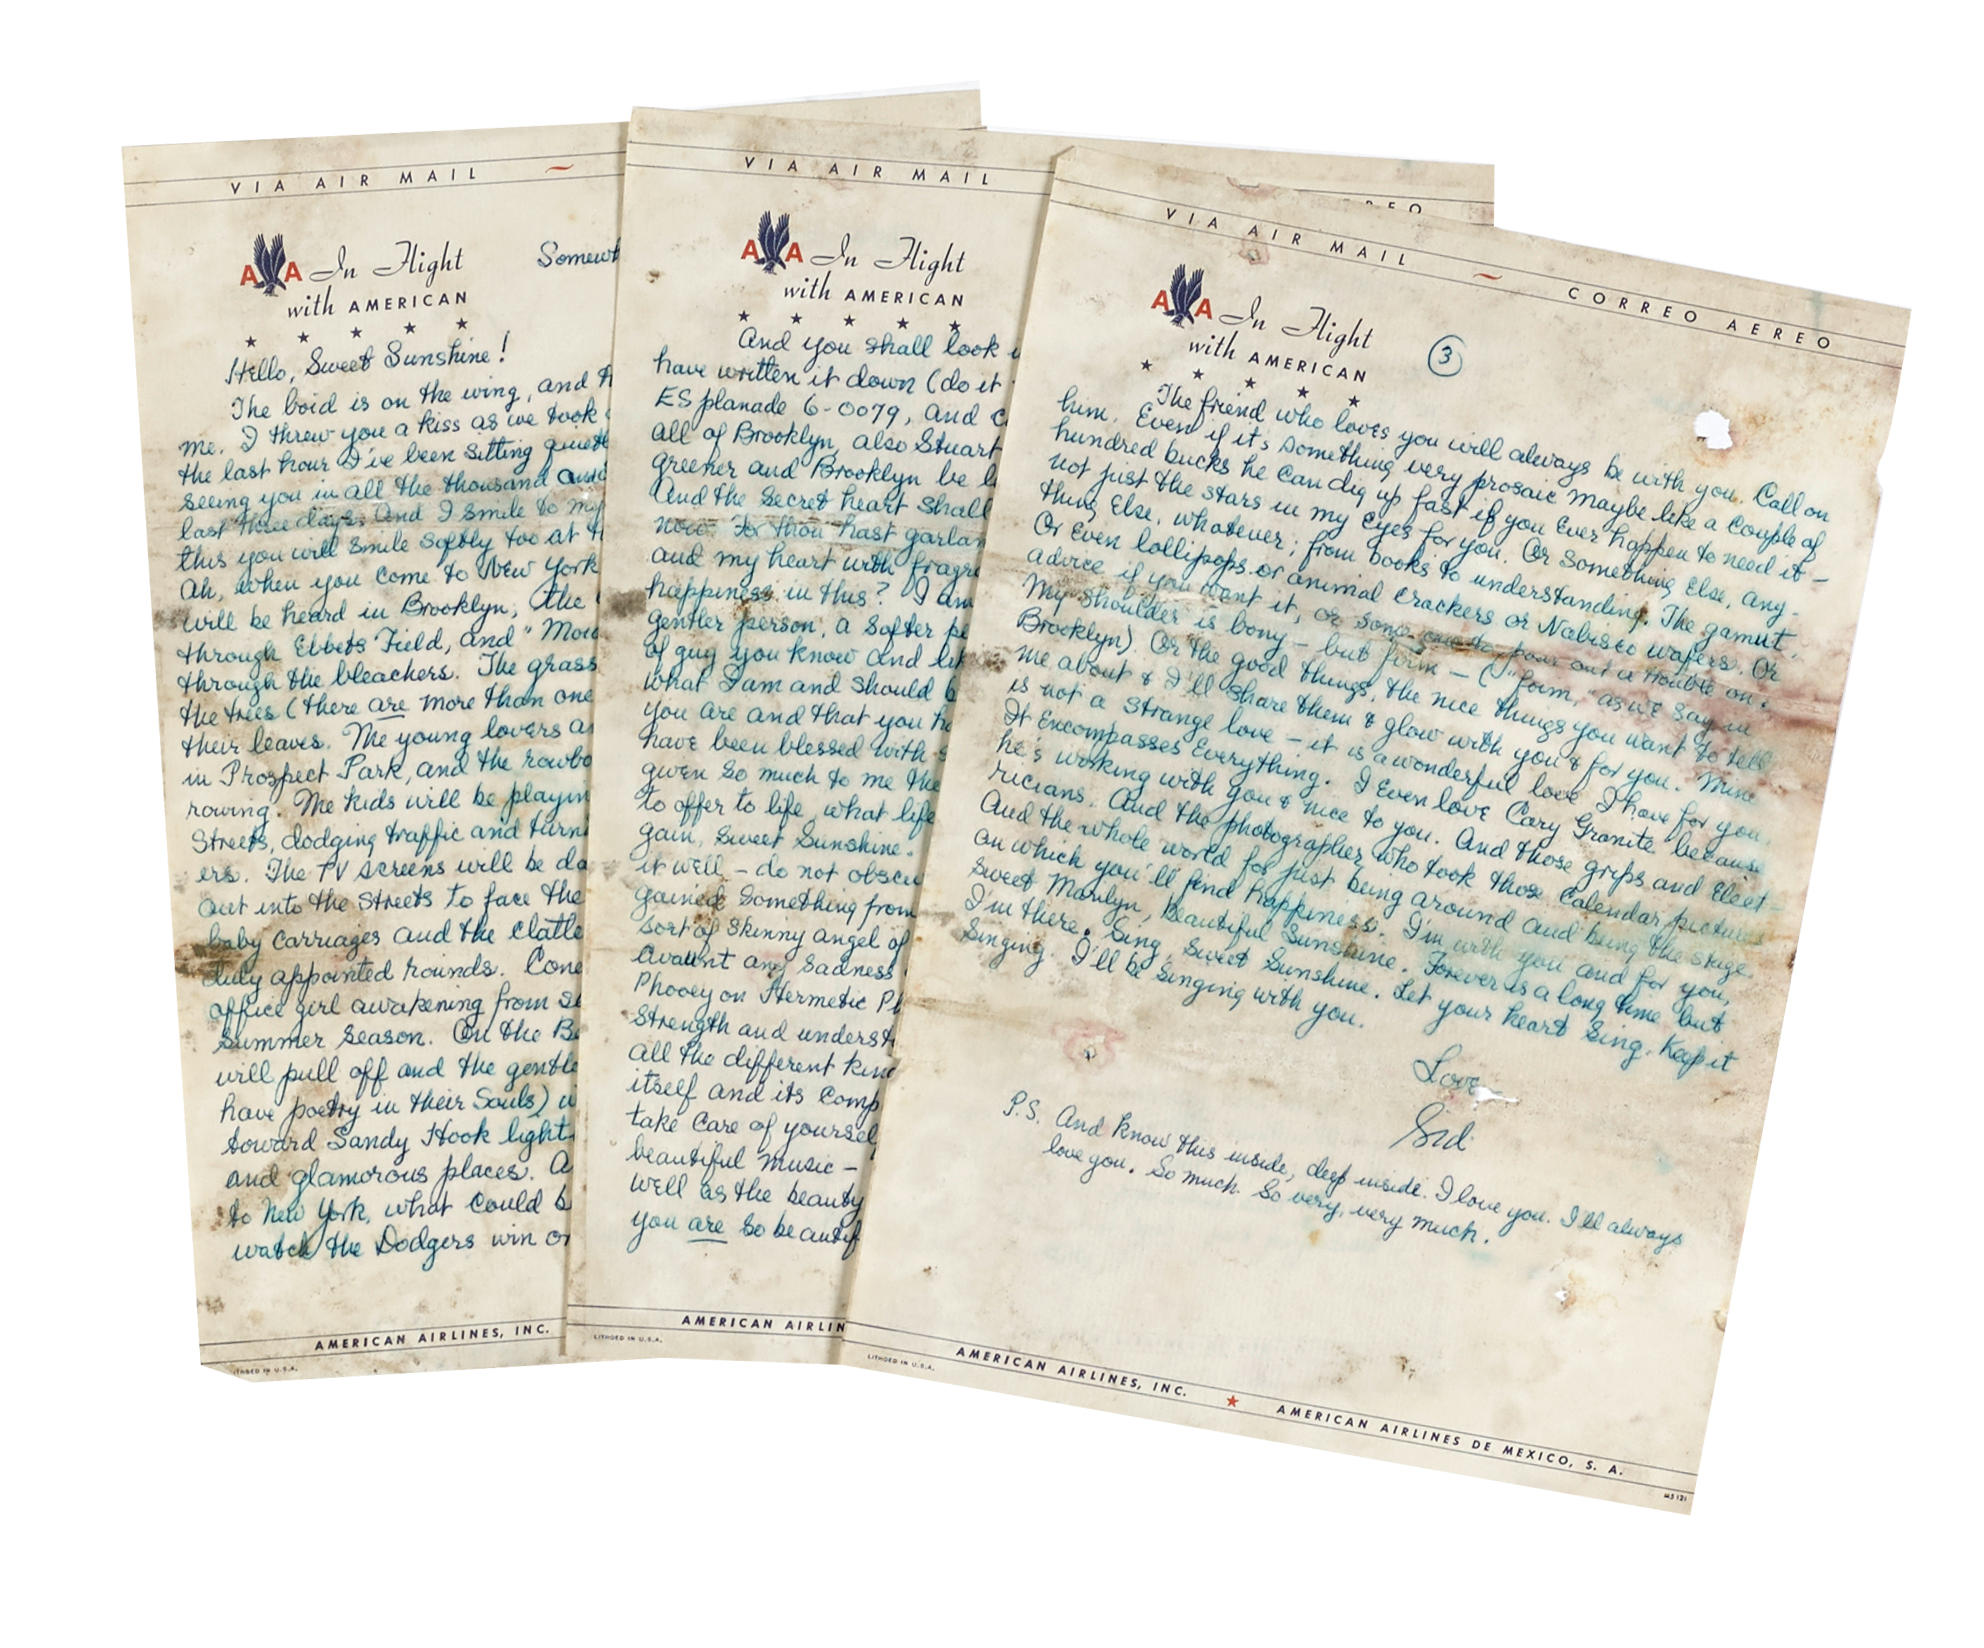 VIA AIR MAIL ~
AA In Flight
with AMERICAN
Somewh
Hello, Sweet Sunshine!
The boid is on the wing, and
me. I threw you a kiss as we took
the last hour I've been sitting quietl
seeing you in all the thousand and
last three days. And I smile to my
this you will smile softly too at
Ah, when you come to New York
will be heard in Brooklyn, the
through Ebbets Field, and "Mou
through the bleachers. The grass
the trees (there are more than one
their leaves. The young lovers a
in Prospect Park, and the rowbo
rowing. The kids will be playin
streets, dodging traffic and turn
ers. The TV screens will be da
out into the streets to face the
baby carriages and the clatte
duly appointed rounds. Cone
office girl awakening from se
summer season. On the Be
will pull off and the gentle
have poetry in their souls) w
toward Sandy Hook light
and glamorous places. A
to New York, what could b
watch the Dodgers win or
AMERICAN AIRLINES, INC.
LITHOED IN U.S.A.
VIA AIR MAIL
AA In Flight
with AMERICAN
And you shall look
have written it down (do it
ESplanade 6-0079, and c
all of Brooklyn, also Stuart
greener and Brooklyn be l
And the secret heart shall
now. For thou hast garlan
and my heart with fragr
happiness in this? I am
gentler person, a softer pe
of guy you know and
what I am and should b
you are and that you h
have been blessed with s
given so much to me the
to offer to life, what life
gain, Sweet Sunshine.
it well - do not obscu
gained something from
sort of skinny angel of
Avaunt any sadness
Phooey on Hermetic Ph
strength and underst
all the different kind
itself and its comp
take care of yoursel
beautiful music -
well as the beauty
you are so beautif
AMERICAN AIRLIN
LITHOED IN U.S.A.
REO
VIA AIR MAIL ~ CORREO AEREO
AA In Flight
with AMERICAN
3
The friend who loves you will always be with you. Call on
him. Even if it's something very prosaic maybe like a couple of
hundred bucks he can dig up fast if you ever happen to need it -
not just the stars in my eyes for you. Or something else, any-
thing else, whatever; from books to understanding. The gamut.
Or even lollipops or animal crackers or Nabisco wafers. Or
advice if you want it, or some one to pour out a trouble on.
My shoulder is bony - but firm - ("foim," as we say in
Brooklyn). Or the good things, the nice things you want to tell
me about & I'll share them & glow with you & for you. Mine
is not a strange love - it is a wonderful love I have for you.
It encompasses everything. I even love Cary Granite because
he's working with you & nice to you. And those grips and elect-
ricians. And the photographer who took those calendar pictures.
And the whole world for just being around and being the stage
on which you'll find happiness. I'm with you and for you,
sweet Marilyn, beautiful Sunshine. Forever is a long time but
I'm there. Sing, Sweet Sunshine. Let your heart sing. Keep it
singing. I'll be singing with you.
Love
Sid
P.S. And know this inside, deep inside. I love you. I'll always
love you. So much. So very, very much.
AMERICAN AIRLINES, INC. ★ AMERICAN AIRLINES DE MEXICO, S. A.
LITHOED IN U.S.A.
MS 121